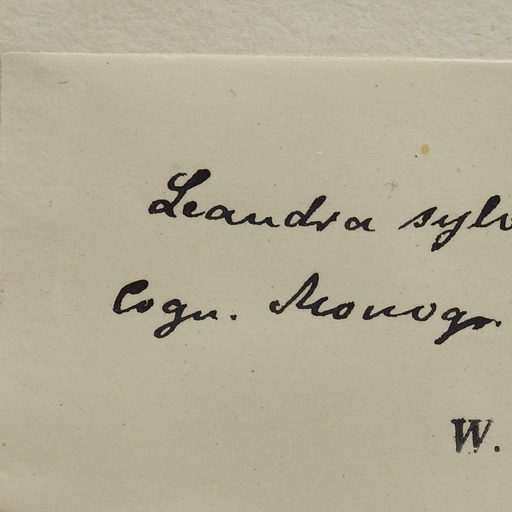 Leandra sylv
Cogn. Monogr.
W.